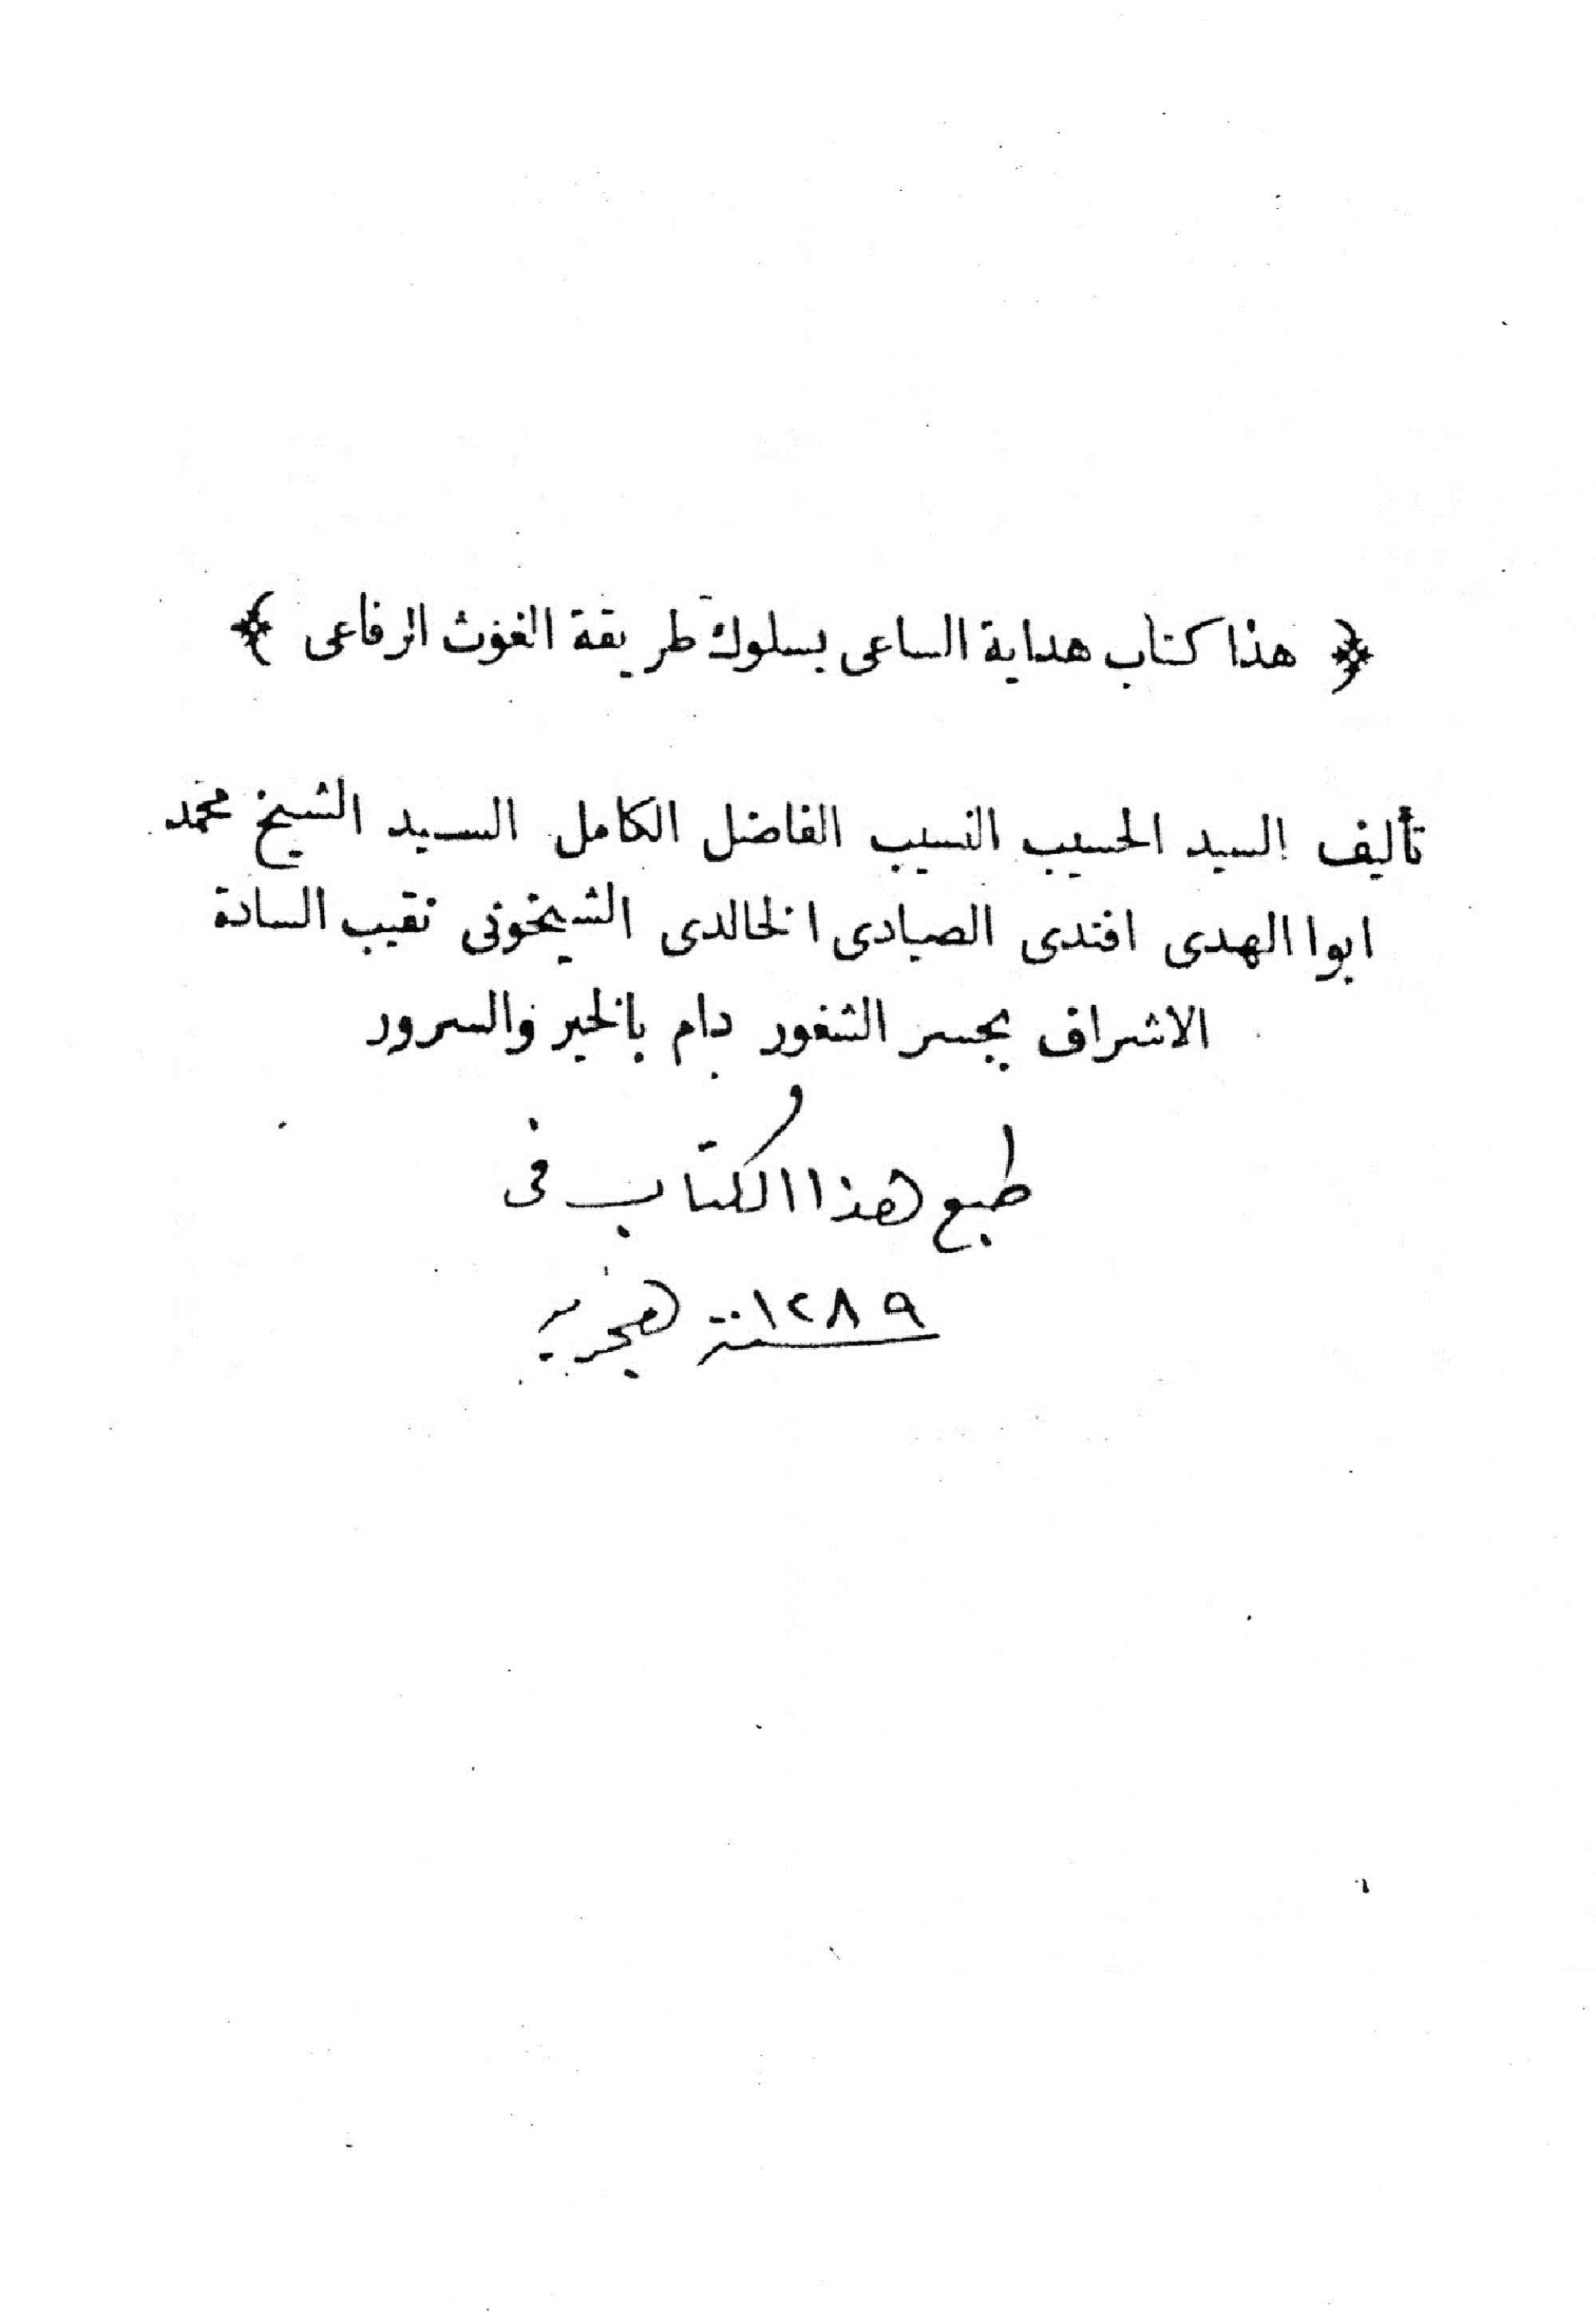 ﴿ هذا كتاب هداية الساعى بسلوك طريقة الغوث الرفاعى ﴾
تأليف السيد الحسيب النسيب الفاضل الكامل السيد الشيخ محمد
ابوا الهدى افندى الصيادى الخالدى الشيخونى نقيب السادة
الاشراف بجسر الشغور دام بالخير والسرور
طبع هذا الكتاب فى
سنة ١٢٨٩ هجريه